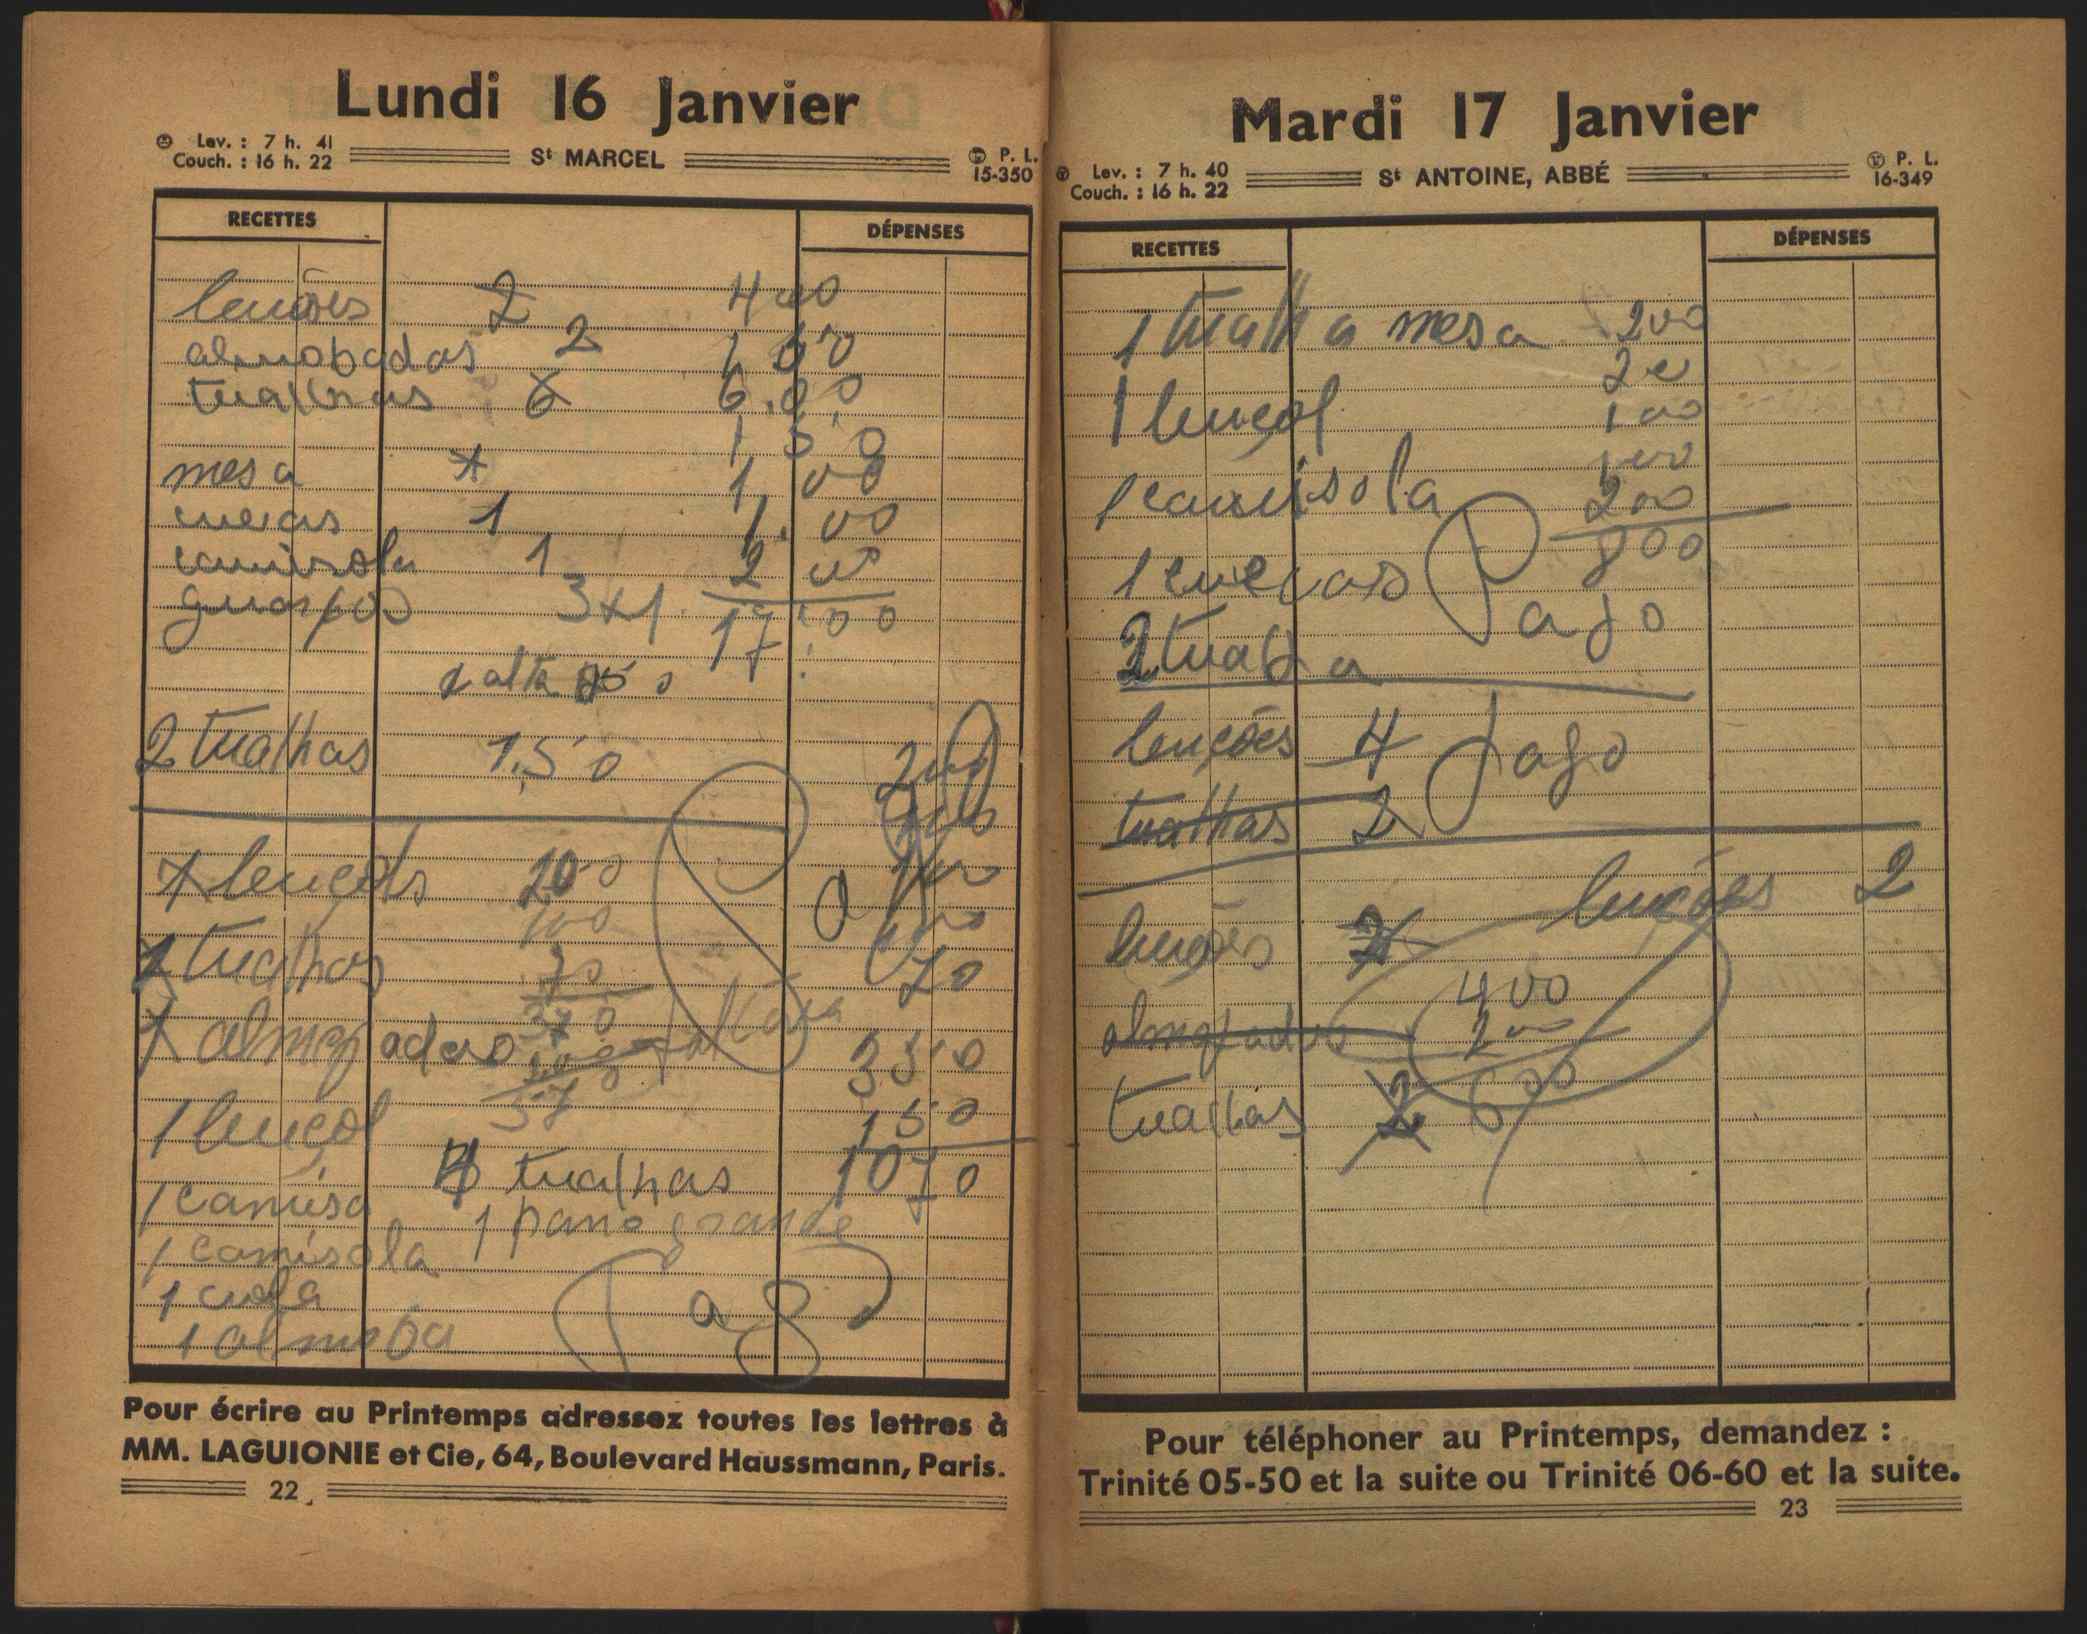 Lundi 16 Janvier
Lev. : 7 h. 41
Couch. : 16 h. 22
St MARCEL
P. L.
15-350
RECETTES
DÉPENSES
lençóes 2 400
almobadas 2 1,50
tualhas 6 6.00
1 50
mesa 1 00
cuecas 1 1.00
camisola 1 2 00
guarpos 3+1 17.00
falta
2 tualhas 1,50 200
lençóis 200
100
tualhas 70 70
370
almopadas 350
1 lençol 150
tualhas 1070
1 camisa 1 pano grande
1 camisola
1 cuefa Pago
1 almoba
Pour écrire au Printemps adressez toutes les lettres à
MM. LAGUIONIE et Cie, 64, Boulevard Haussmann, Paris.
22
Mardi 17 Janvier
Lev. : 7 h. 40
Couch. : 16 h. 22
St ANTOINE, ABBÉ
P. L.
16-349
RECETTES
DÉPENSES
1 tualha mesa 200
1 lençol 100
1 camisola 200
800
1 cuecas Pago
2 tualha
lençóes 4 Pago
tualhas 2
lençóes 2
lençóes 2
400
almopadas 200
tualhas 2 600
Pour téléphoner au Printemps, demandez :
Trinité 05-50 et la suite ou Trinité 06-60 et la suite.
23